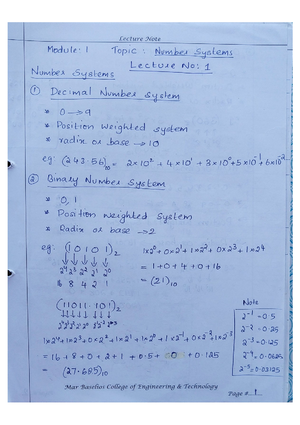 Lecture Note
Module: 1 Topic: Number Systems
Lecture No: 1
Number Systems
① Decimal Number System
* 0→9
* Position weighted system
* radix or base → 10
eg: (243.56)₁₀ = 2×10² + 4×10¹ + 3×10⁰ + 5×10⁻¹ + 6×10⁻²
② Binary Number System
* 0, 1
* Position weighted System
* Radix or base → 2
eg: (10101)₂ 1×2⁰+0×2¹+1×2²+0×2³+1×2⁴
↓↓↓↓↓ = 1+0+4+0+16
2⁴ 2³ 2² 2¹ 2⁰ = (21)₁₀
16 8 4 2 1
(11011.101)₂ Note
2⁴ 2³ 2² 2¹ 2⁰ 2⁻¹ 2⁻² 2⁻³ 2⁻¹ = 0.5
2⁻² = 0.25
1×2⁴+1×2³+0×2²+1×2¹+1×2⁰+1×2⁻¹+0×2⁻²+1×2⁻³ 2⁻³ = 0.125
= 16 + 8 + 0 + 2 + 1 + 0.5 + 0 + 0.125 2⁻⁴ = 0.0625
= (27.625)₁₀ 2⁻⁵ = 0.03125
Mar Baselios College of Engineering & Technology
Page #..1...